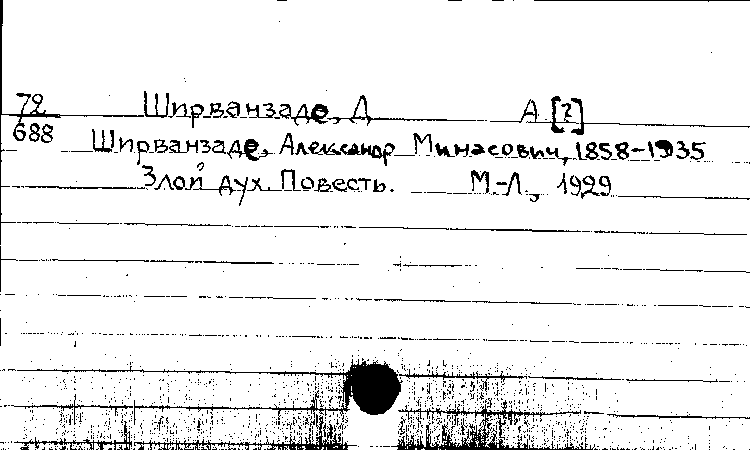 72 Ширванзаде, Д А [?]
688 Ширванзаде, Александр Минасович, 1858-1935
Злой дух. Повесть. М-Л., 1929